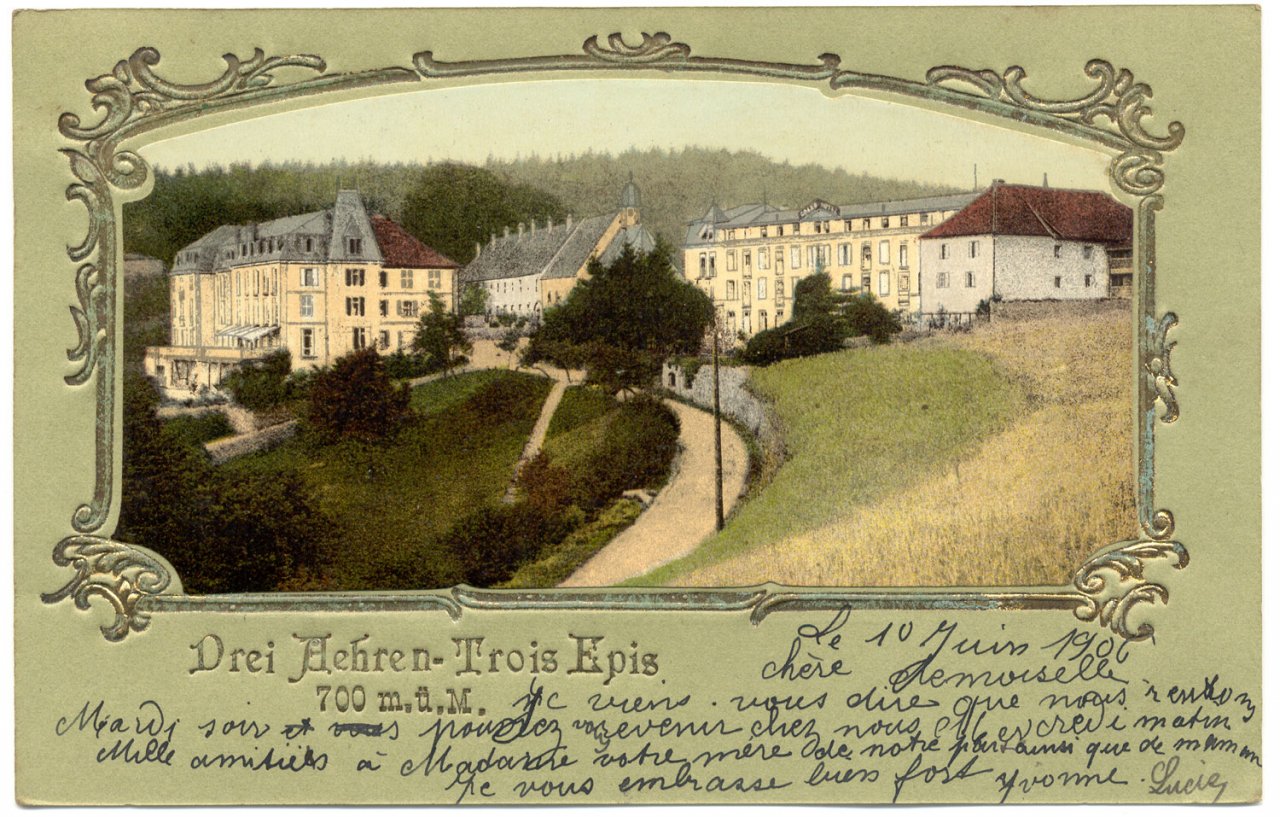 Drei Aehren-Trois Epis
700 m.ü.M.
Le 10 Juin 190
chère demoiselle
Je viens vous dire que nous rentrons
Mardi soir et vous pourrez revenir chez nous Mercredi matin
Mille amitiés à Madame votre mère de notre part ainsi que de maman
Je vous embrasse bien fort Yvonne. Lucie